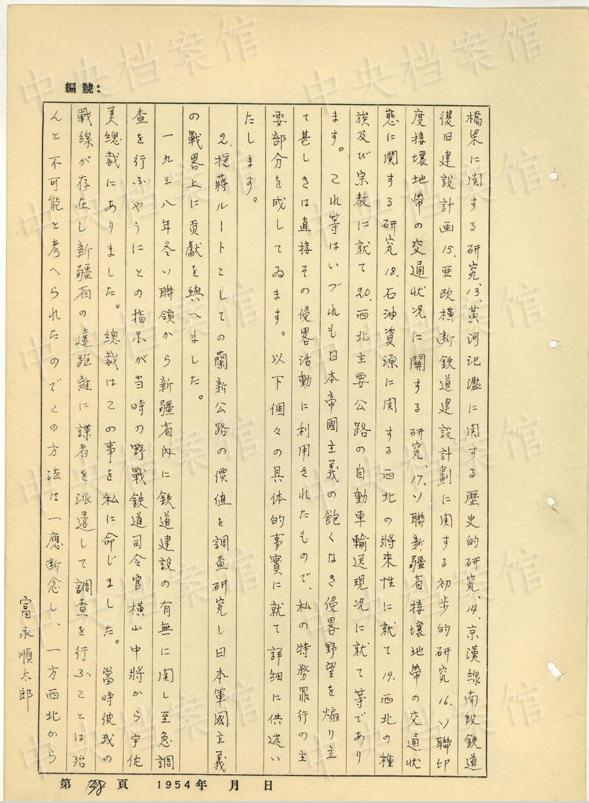 編號:
橋梁に関する研究、13.黄河氾濫に関する歴史的研究、14.京漢線南段鉄道
復旧建設計画15.亜欧横断鉄道建設計劃に関する初歩的研究16.ソ聯印
度接壌地帯の交通状況に関する研究、17.ソ聯新疆省接壌地帯の交通状
態に関する研究18.石油資源に関する西北の将来性に就て19.西北の種
族及び宗教に就て20.西北主要公路の自動車輸送現況に就て等であり
ます。これ等はいづれも日本帝國主義の飽くなき侵畧野望を煽り立
て甚しきは直接その侵畧活動に利用されたもので、私の特務罪行の主
要部分を成してゐます。以下個々の具体的事實に就て詳細に供述い
たします。
2.援蔣ルートとしての蘭新公路の價値を調査研究し日本軍國主義
の戰畧上に貢献を與へました。
一九三八年冬ソ聯領から新疆省内に鉄道建設の有無に関し至急調
査を行ふやうにとの指示が当時の野戰鉄道司令官横山中將から宇佐
美總裁にありました。總裁はこの事を私に命じました。當時彼我の
戰線が存在し新疆省の遠距離に諜者を派遣して調査を行ふことは殆
んど不可能と考へられたのでこの方法は一應断念し、一方西北から
富永順太郎
第 38 頁 1954年 月 日
中央档案馆